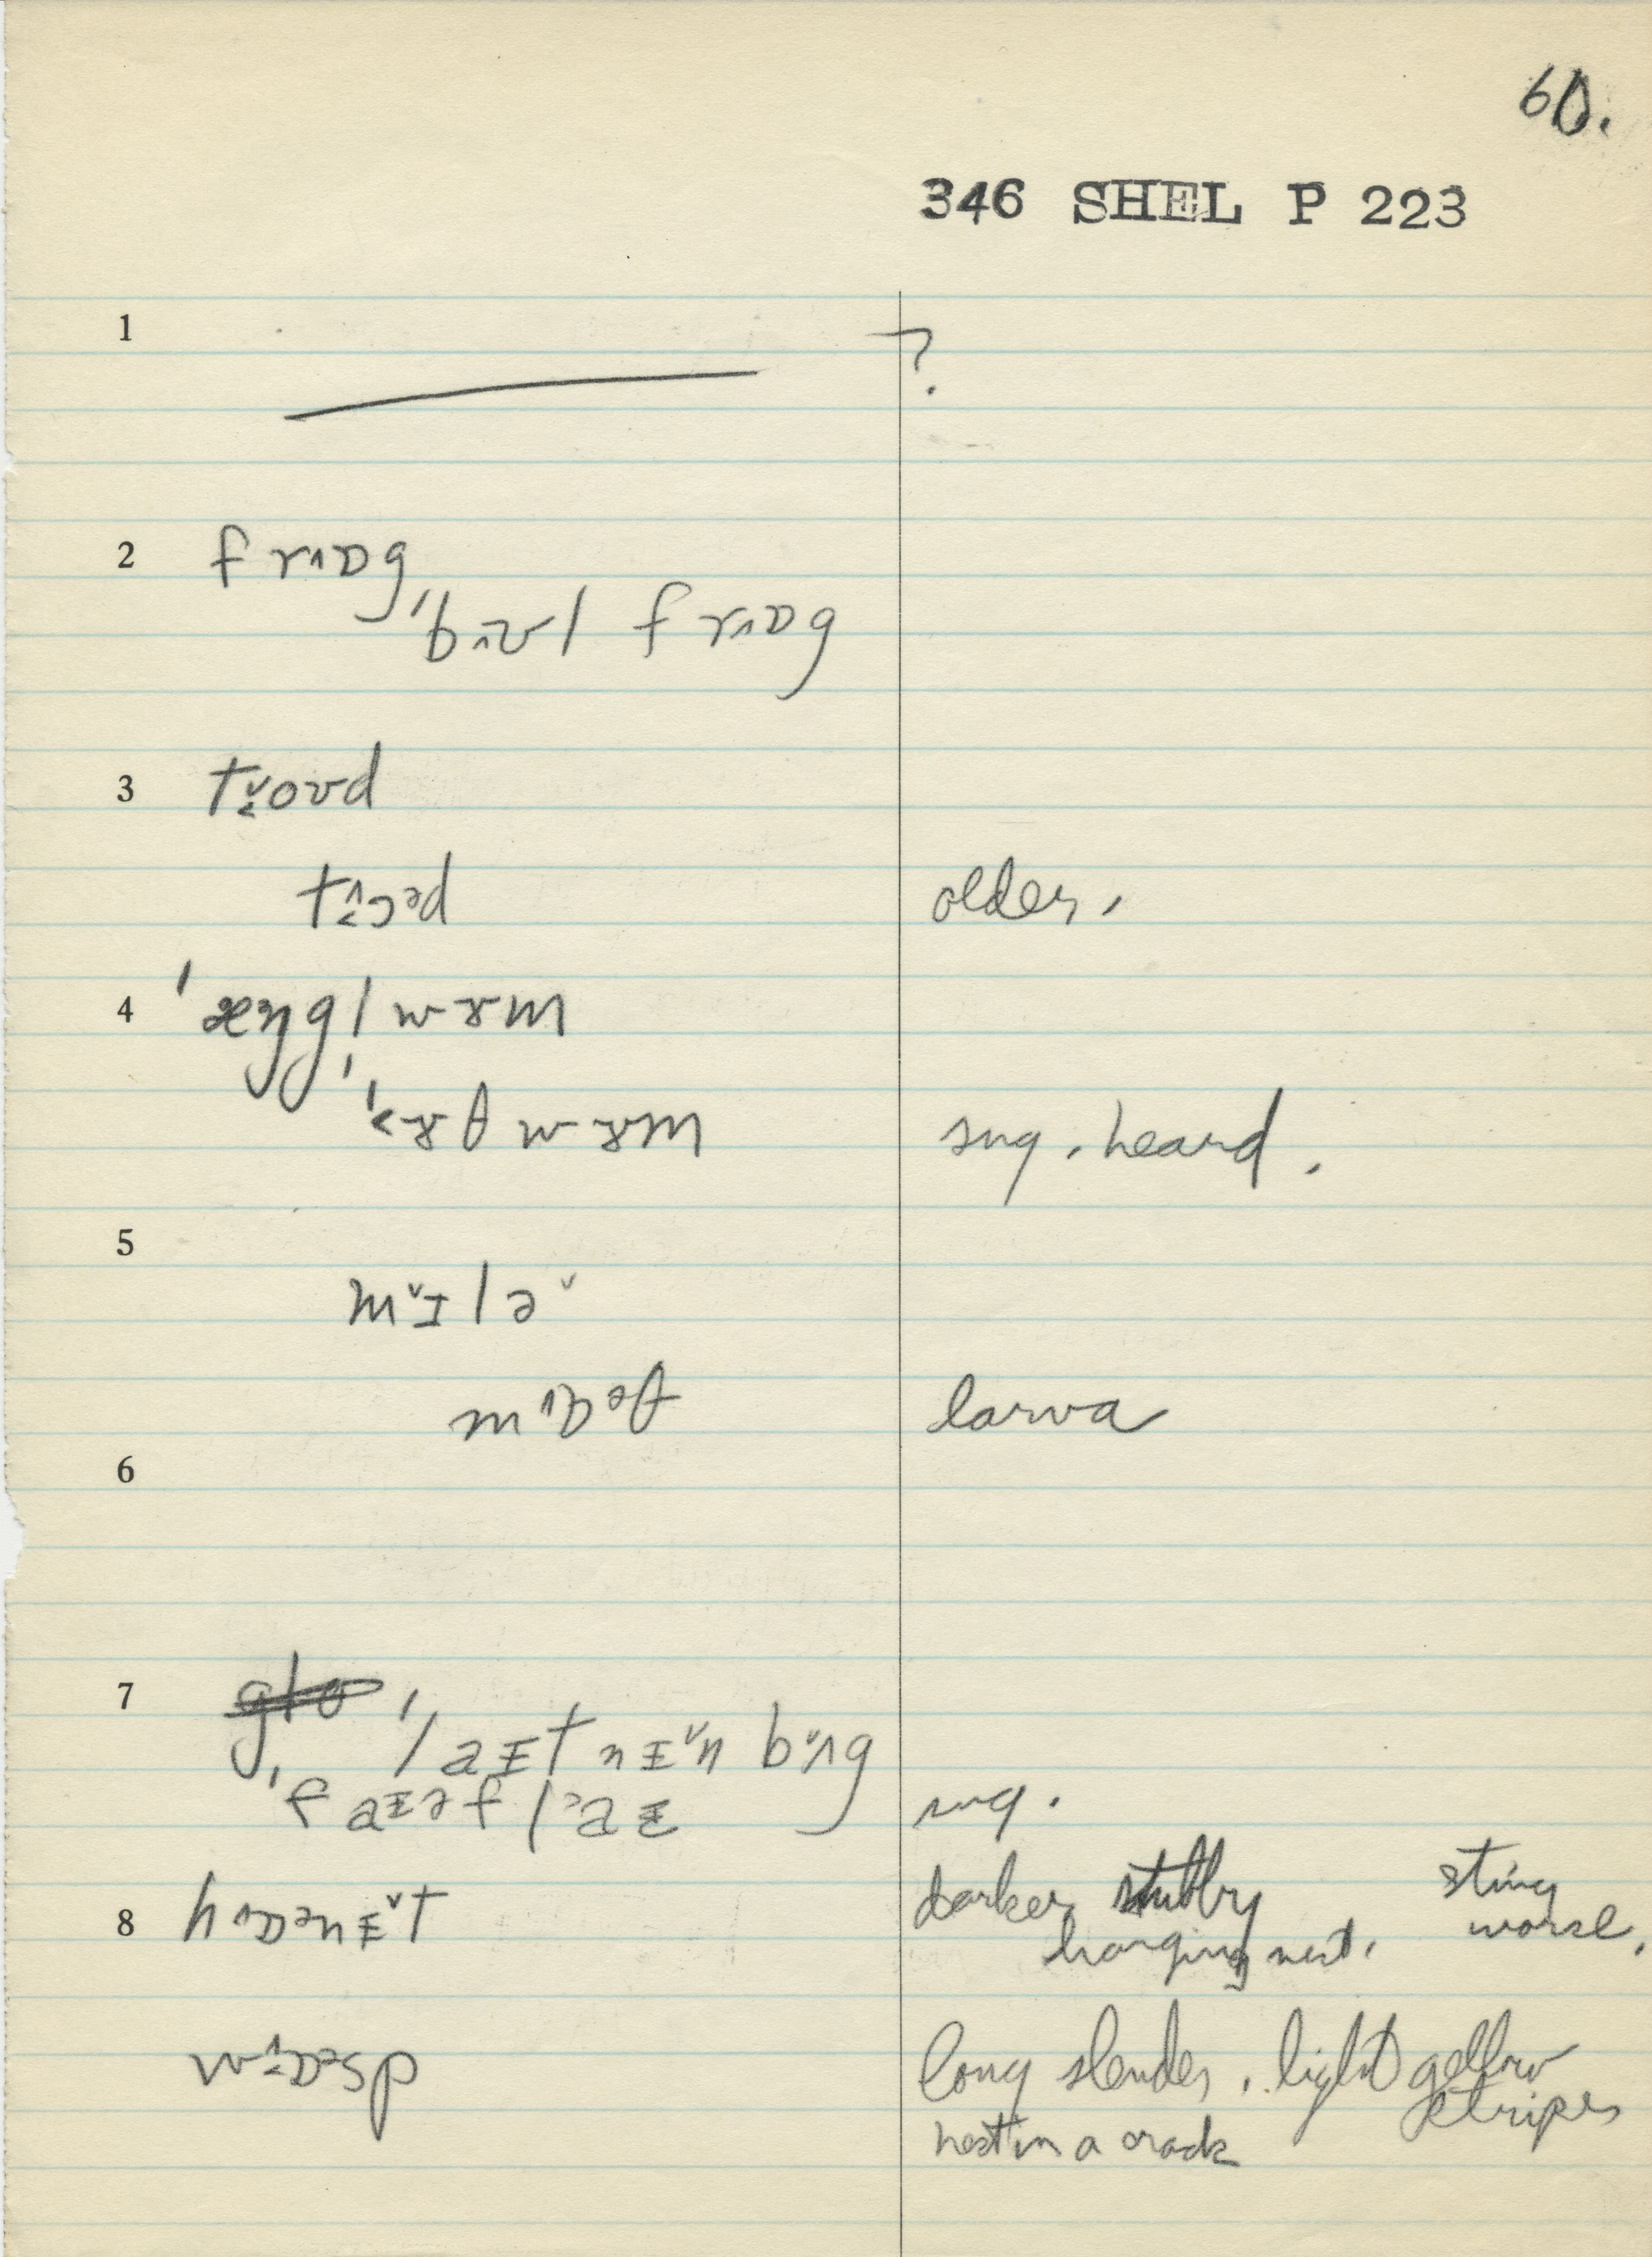 60.
346 SHEL P 223
1 ?
2 frɒg
ˈbʊl frɒg
3 tʉoʊd
tɔəd older,
4 ˈæŋglˌwɚm
ˈɚθwɚm sug. heard.
5
mɪlə
mɒəθ larva
6
7 glo ˈlaɪtnɪn bʌg
ˈfaɪəflaɪ sug.
8 hɒənɪt darker stubby sting
hanging nest, worse.
wɒəsp long slender, light yellow
stripes
nest in a crack